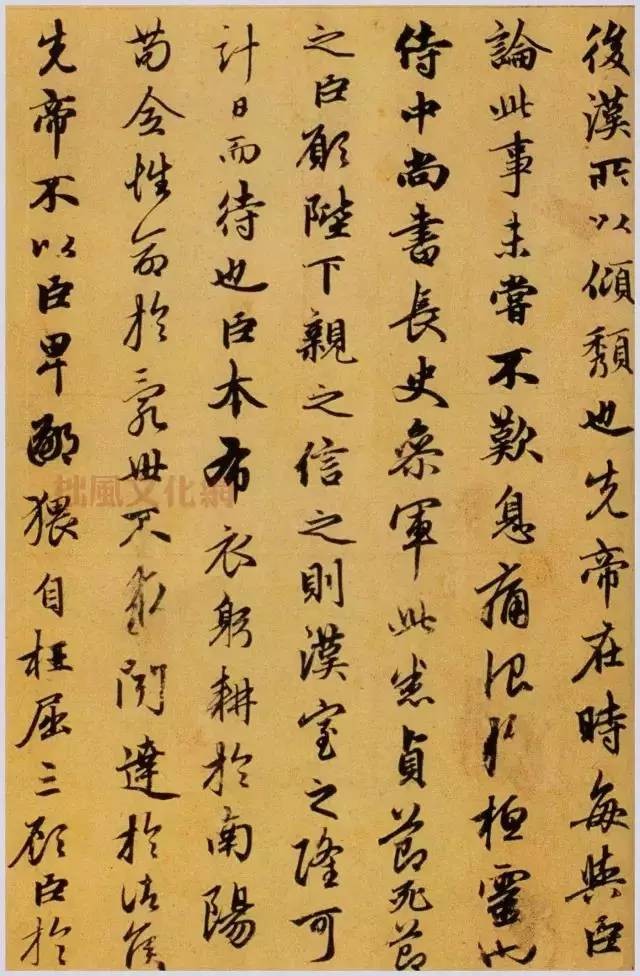 後漢所以傾頽也先帝在時每與臣
論此事未嘗不歎息痛恨於桓靈也
侍中尚書長史參軍此悉貞節死節
之臣願陛下親之信之則漢室之隆可
計日而待也臣本布衣躬耕於南陽
苟全性命於亂世不求聞達於諸侯
先帝不以臣卑鄙猥自枉屈三顧臣於
拙風文化網